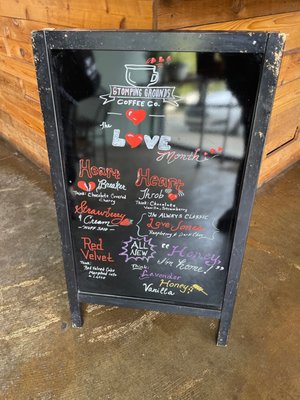 STOMPING GROUNDS
COFFEE CO.
the
LOVE
Month
Heart
Breaker
Think: Chocolate Covered
Cherry
Heart
Throb
Think: Chocolate
Vanilla, Strawberry
Strawberry
& Cream
The ALWAYS CLASSIC
Love Jones
Raspberry & Dark Choc
Red
Velvet
Think:
Red Velvet Cake
ALL
NEW
"Honey,
I'm home"
Think:
Lavender
Honey
Vanilla